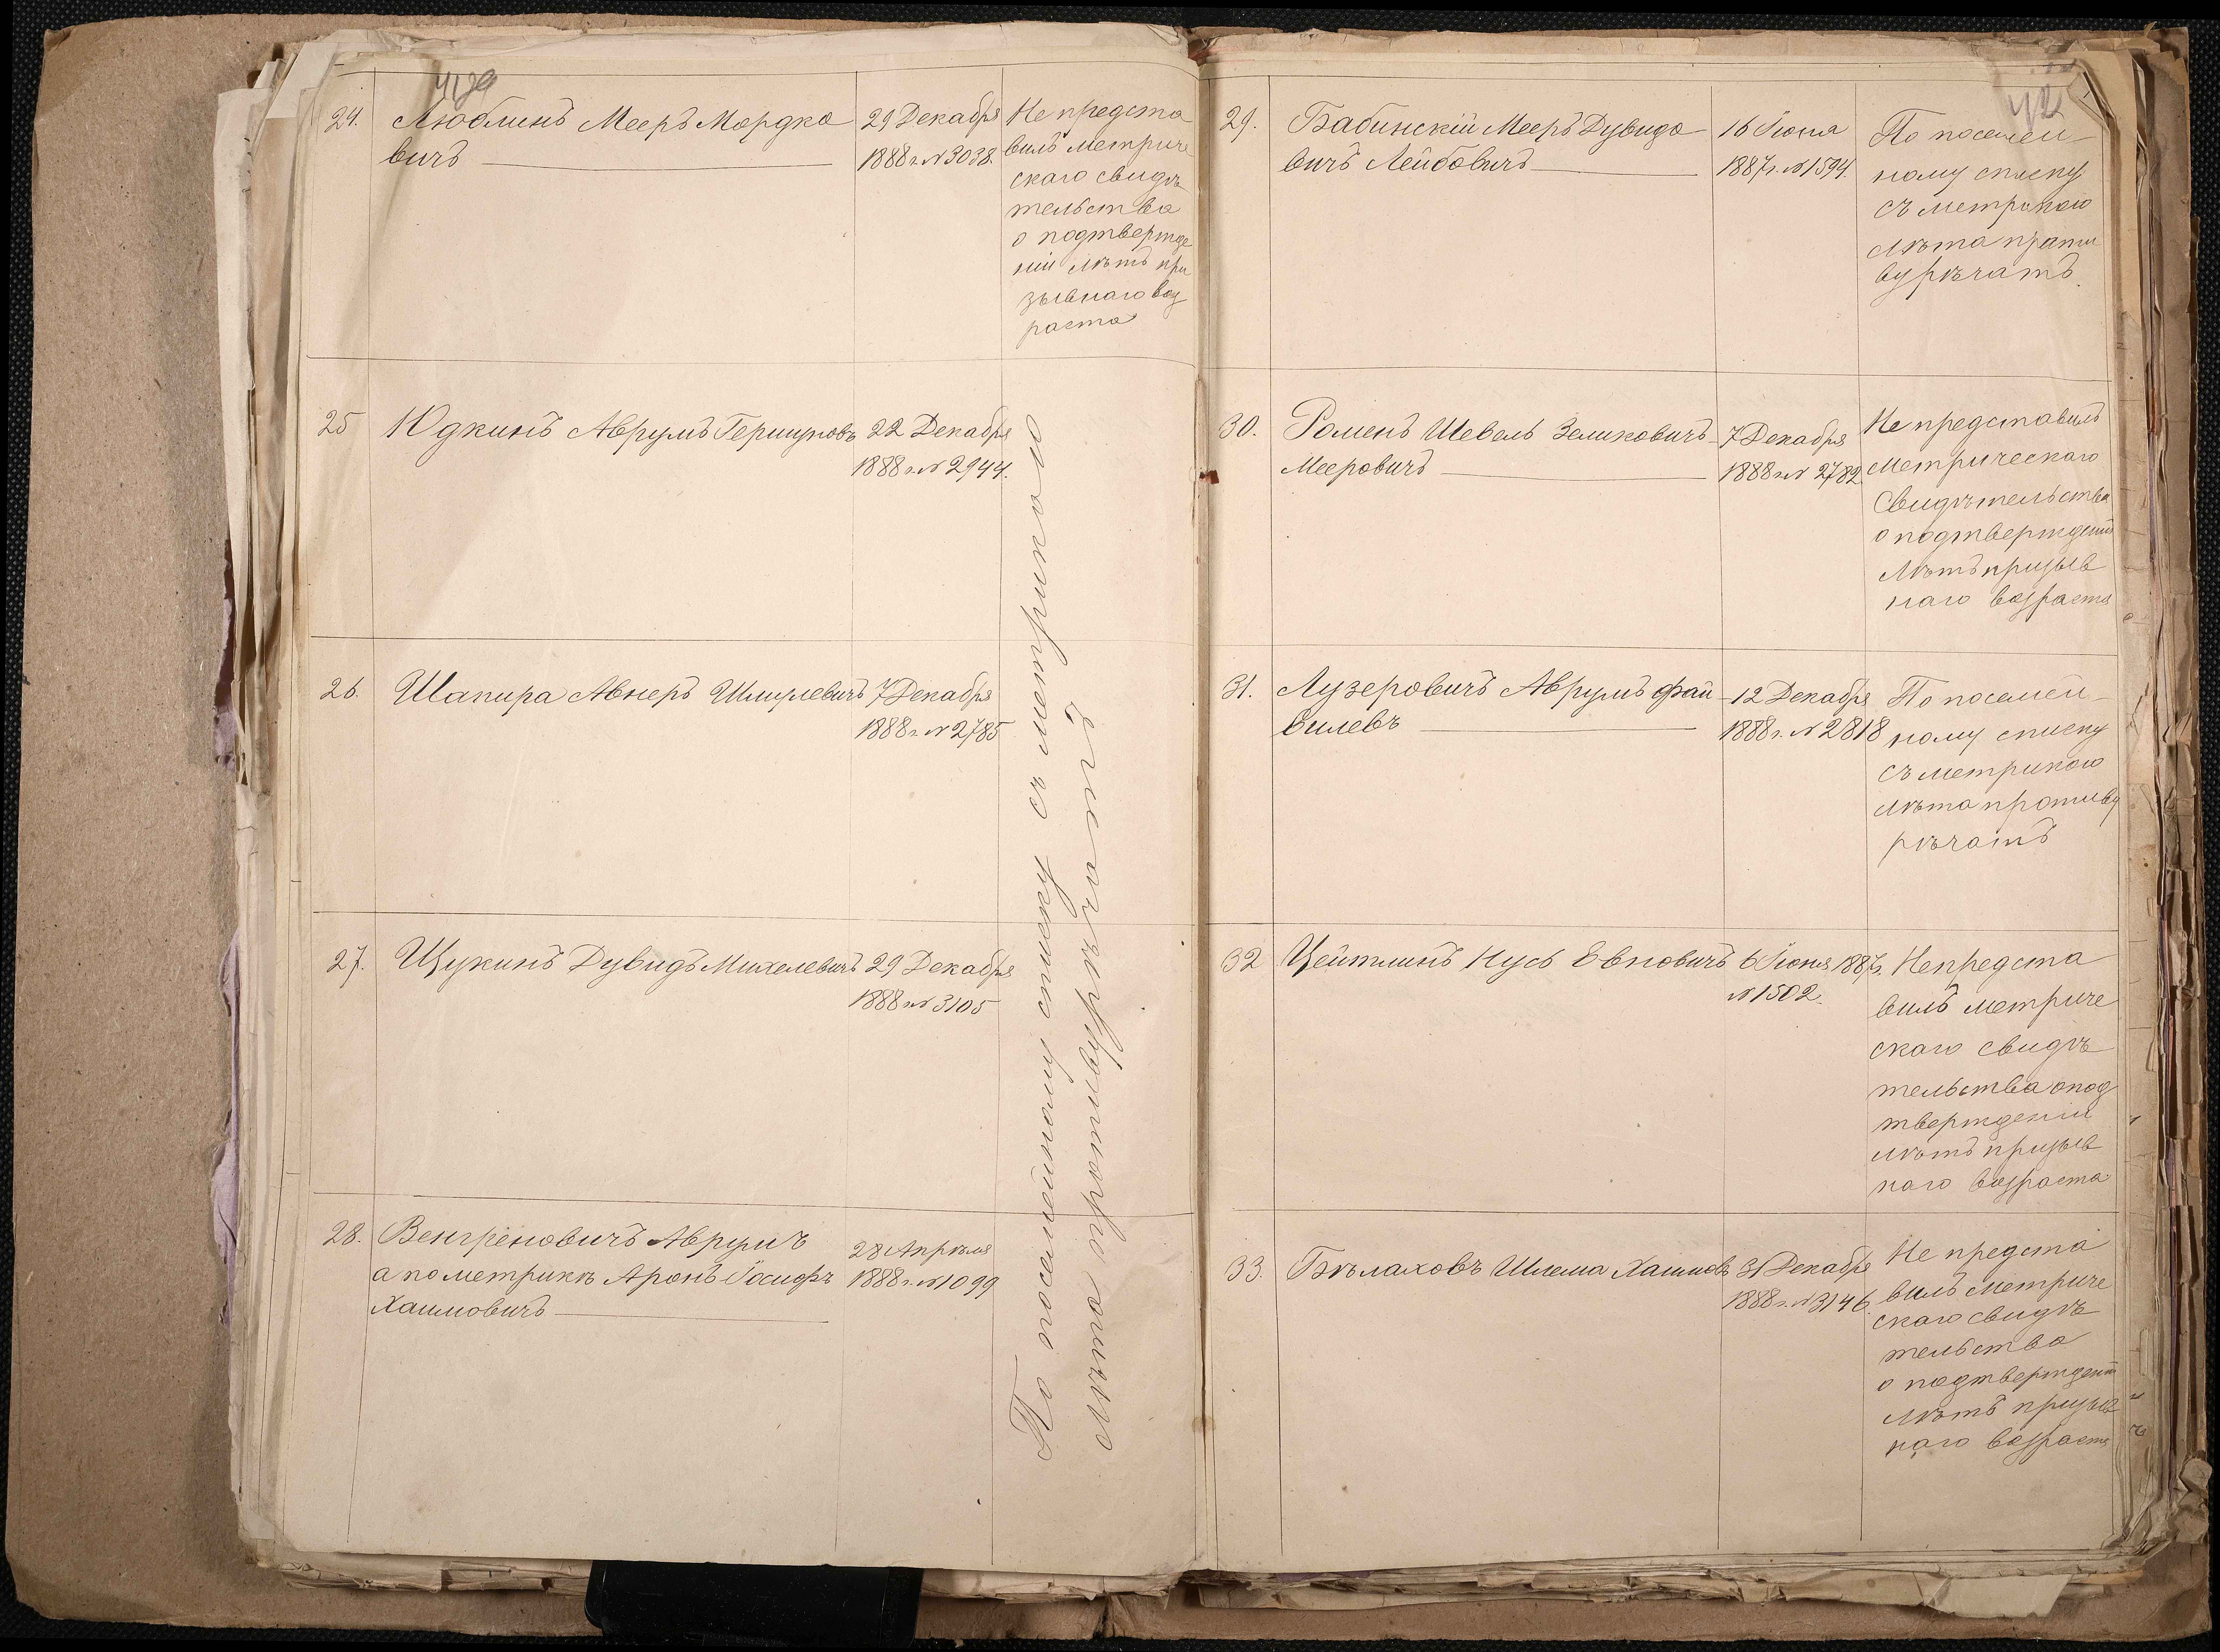 24.
Люблинъ Мееръ Мордко
вичъ
29 Декабря
1888 г. № 3038.
Не предста
вилъ метриче
скаго свидѣ
тельства
о подтвержде
ніи лѣтъ при
зывнаго воз
раста
25
Юдкинъ Аврумъ Гершуновъ
22 Декабря
1888 г. № 2944.
26.
Шапира Авнеръ Шмулевичъ
7 Декабря
1888 г. № 2785
27.
Щукинъ Дувидъ Михелевичъ
29 Декабря
1888 г. № 3105
28.
Венгреновичъ Аврумъ
а по метрикѣ Аронъ-Іосифъ
Хаимовичъ
28 Апрѣля
1888 г. № 1099
По посемейному списку съ метрикою
лѣта противурѣчатъ
42
29.
Бабинскій Мееръ Дувидо
вичъ Лейбовичъ
16 Іюня
1887 г. № 1594.
По посемей
ному списку
съ метрикою
лѣта проти
вурѣчатъ.
30.
Роменъ Шевель Зеликовичъ
Мееровичъ
7 Декабря
1888 г. № 2782.
Не представилъ
метрическаго
свидѣтельства
о подтвержденіи
лѣтъ призыв
наго возраста
31.
Лузеровичъ Аврумъ Фай
вилевъ
12 Декабря
1888 г. № 2818
По посемей
ному списку
съ метрикою
лѣта противу
рѣчатъ
32
Цейтлинъ Нусъ Евновичъ
6 Іюня 1887 г.
№ 1502.
Не предста
вилъ метриче
скаго свидѣ
тельства о под
твержденіи
лѣтъ призыв
наго возраста
33.
Бѣлаховъ Шлема Хаимовъ
31 Декабря
1888 г. № 3146.
Не предста
вилъ метриче
скаго свидѣ
тельства
о подтвержденіи
лѣтъ призыв
наго возраста